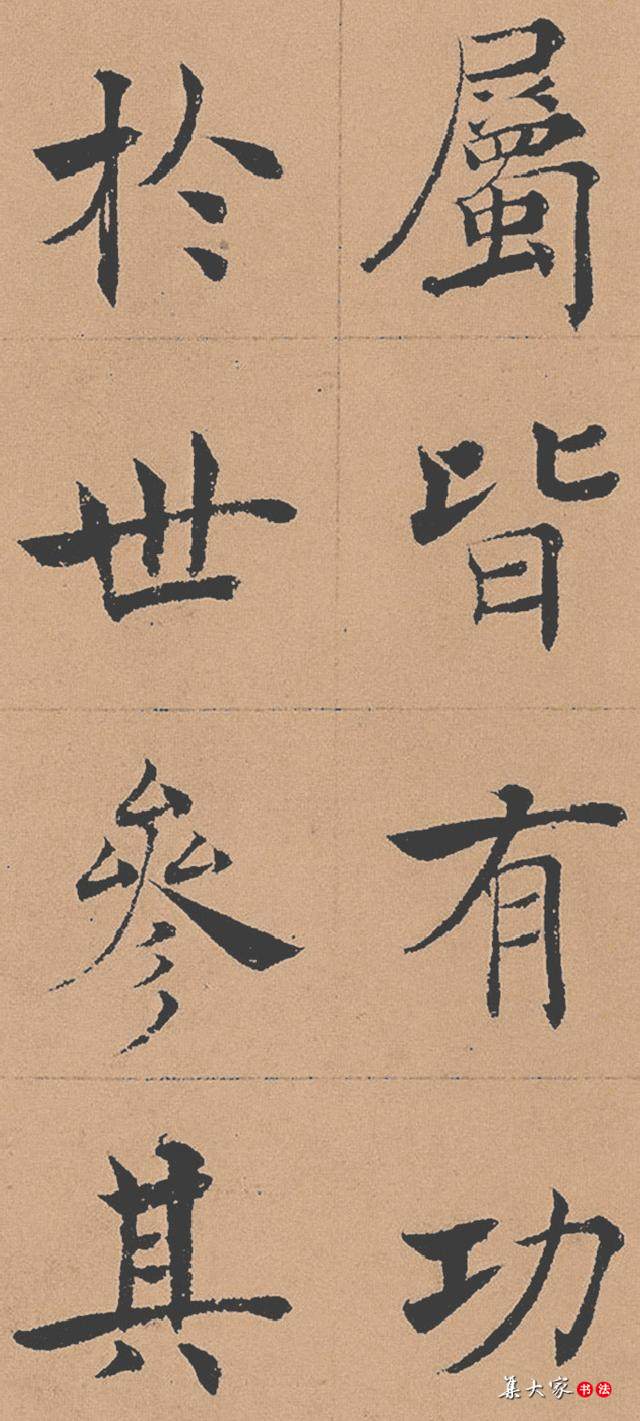 屬皆有功
於世參其
集大家书法